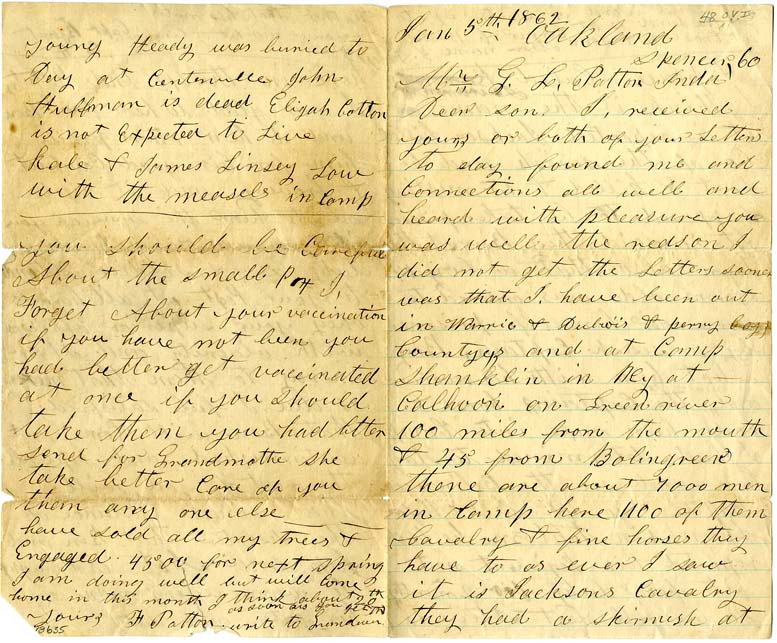 Jan 5th 1862 Oakland
Spencer, 60
Mr G. L, Patton Inda
Dear son. I, received
yours or both of your Letters
to day found me and
Connections all well and
heard with pleasure you
was well the reason I
did not get the Letters sooner
was that I, have been out
in Warric & Dubois & perry
Countys and at Camp
Shanklin in Ky at –
Calhoon on Green river
100 miles from the mouth
& 45 from Bolingreen
there are about 7000 men
in Camp here 1100 of them
Cavalry & fine horses they
have to as ever I saw
it is Jacksons Cavalry
they had a skirmish at
young Heady was buried to
Day at Centerville John
Huffman is dead Elijah Cotton
is not Expected to Live
Kale & James Linsey Low
with the measels in Camp
you should be Carefull
About the small Pox I,
Forget About your vaccination
if you have not been you
had better get vaccinated
at once if you should
take them you had better
send for Grandmothe she
take better Care of you
then any one else
have sold all my trees &
Engaged 4500 for next spring
I am doing well but will come
home in this month I think about
as soon as you get
yours F Patton write to Grandma